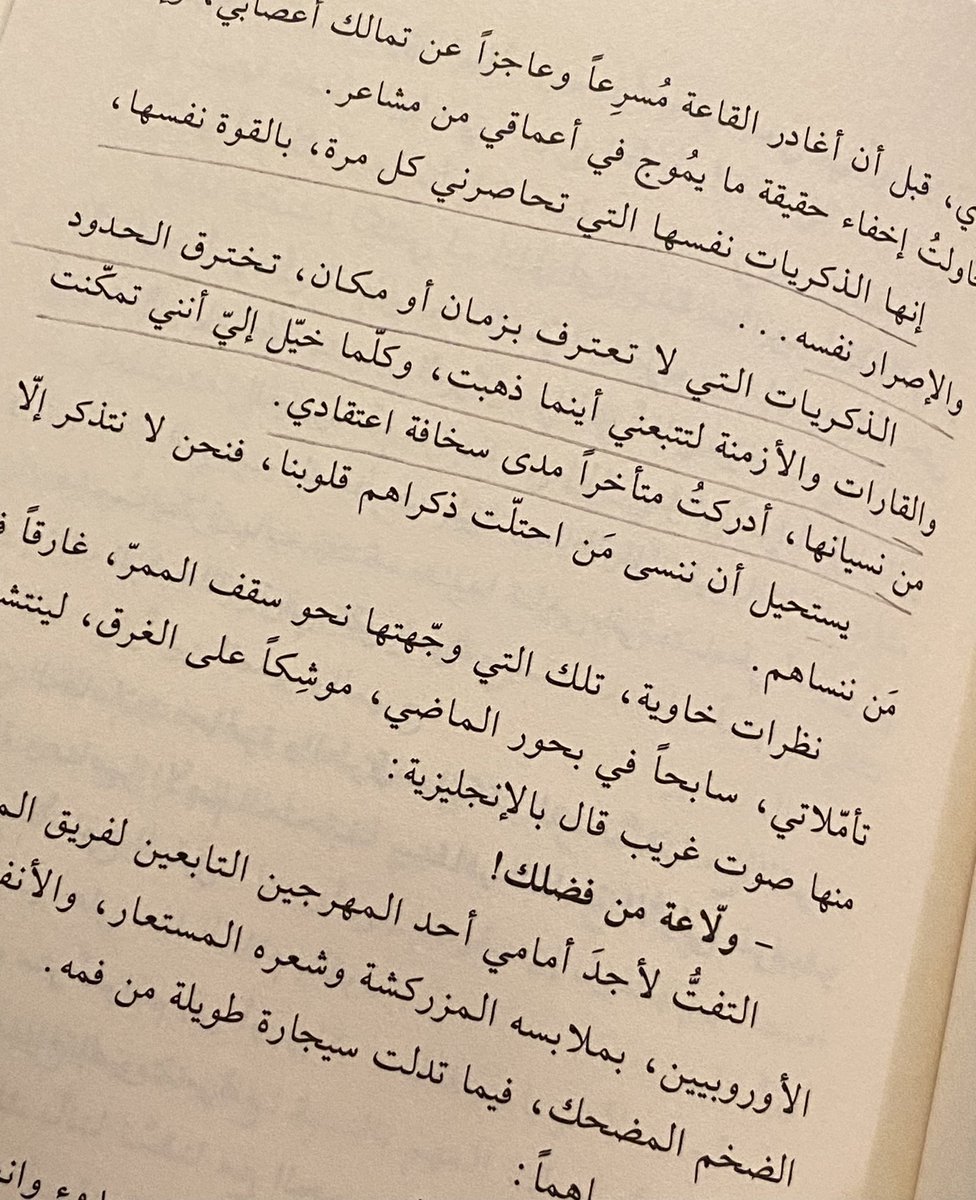 قبل أن أغادر القاعة مُسرِعاً وعاجزاً عن تمالك أعصابي،
إخفاء حقيقة ما يمُوج في أعماقي من مشاعر.
إنها الذكريات نفسها التي تحاصرني كل مرة، بالقوة نفسها،
والإصرار نفسه...
الذكريات التي لا تعترف بزمان أو مكان، تخترق الحدود
والقارات والأزمنة لتتبعني أينما ذهبت، وكلّما خيّل إليّ أنني تمكّنت
من نسيانها، أدركتُ متأخراً مدى سخافة اعتقادي.
يستحيل أن ننسى مَن احتلّت ذكراهم قلوبنا، فنحن لا نتذكر إلّا
مَن ننساهم.
نظرات خاوية، تلك التي وجّهتها نحو سقف الممرّ، غارقاً
تأمّلاتي، سابحاً في بحور الماضي، موشِكاً على الغرق،
منها صوت غريب قال بالإنجليزية:
- ولّاعة من فضلك!
التفتُّ لأجدَ أمامي أحد المهرجين التابعين لفريق
الأوروبيين، بملابسه المزركشة وشعره المستعار،
الضخم المضحك، فيما تدلت سيجارة طويلة من فمه.